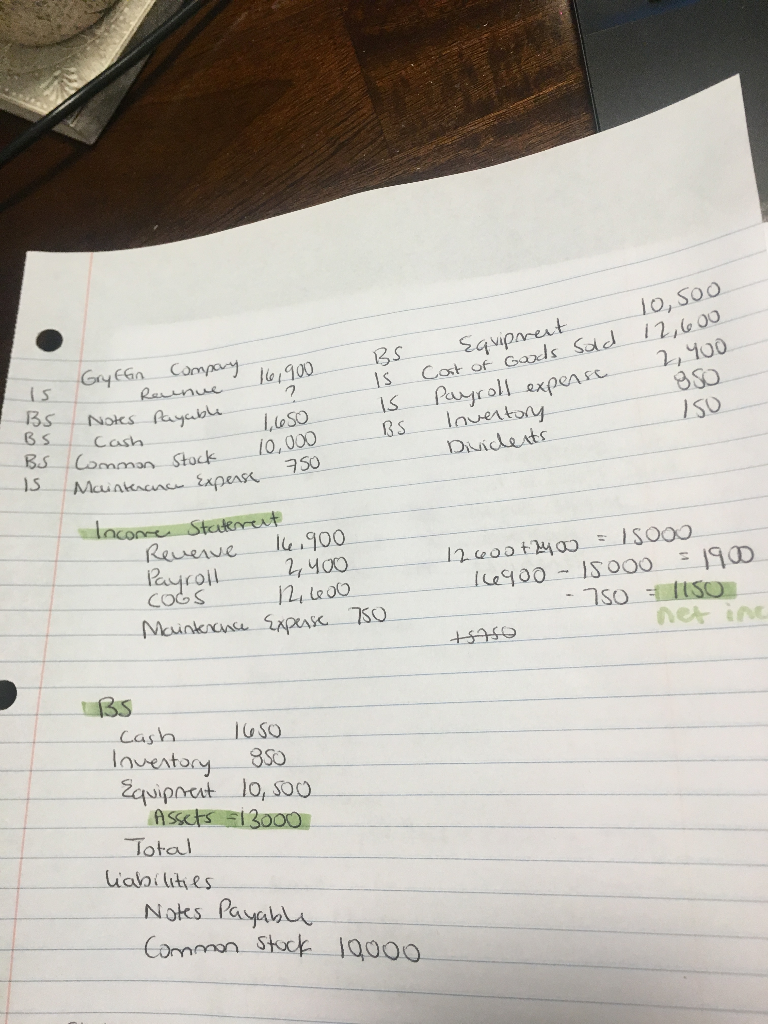 Gryffin Company
IS Revenue 16,900
BS Notes Payable ?
BS Cash 1,650
BS Common Stock 10,000
IS Maintenance Expense 750
BS Equipment 10,500
IS Cost of Goods Sold 12,600
IS Payroll expense 2,400
BS Inventory 850
Dividents 150
Income Statement
Revenue 16,900
Payroll 2,400
COGS 12,600
Maintenance Expense 750
12600+2400 = 15000
16900 - 15000 = 1900
- 750 = 1150
net inc
+5750
BS
Cash 1650
Inventory 850
Equipment 10,500
Assets =13000
Total
Liabilities
Notes Payable
Common Stock 10,000